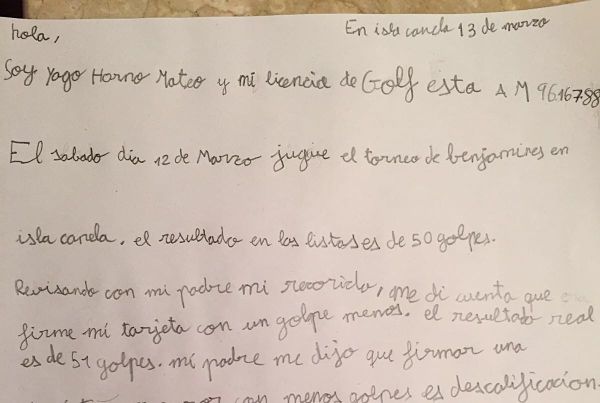 hola,
En isla canela 13 de marzo
Soy Yago Horno Mateo y mi licencia de Golf esta A M 96167.88
El sabado dia 12 de Marzo jugue el torneo de benjamines en
isla canela. el resultado en las listas es de 50 golpes.
Revisando con mi padre mi recorrido, me di cuenta que
firme mi tarjeta con un golpe menos. el resultado real
es de 51 golpes. mi padre me dijo que firmar una
con menos golpes es descalificación.